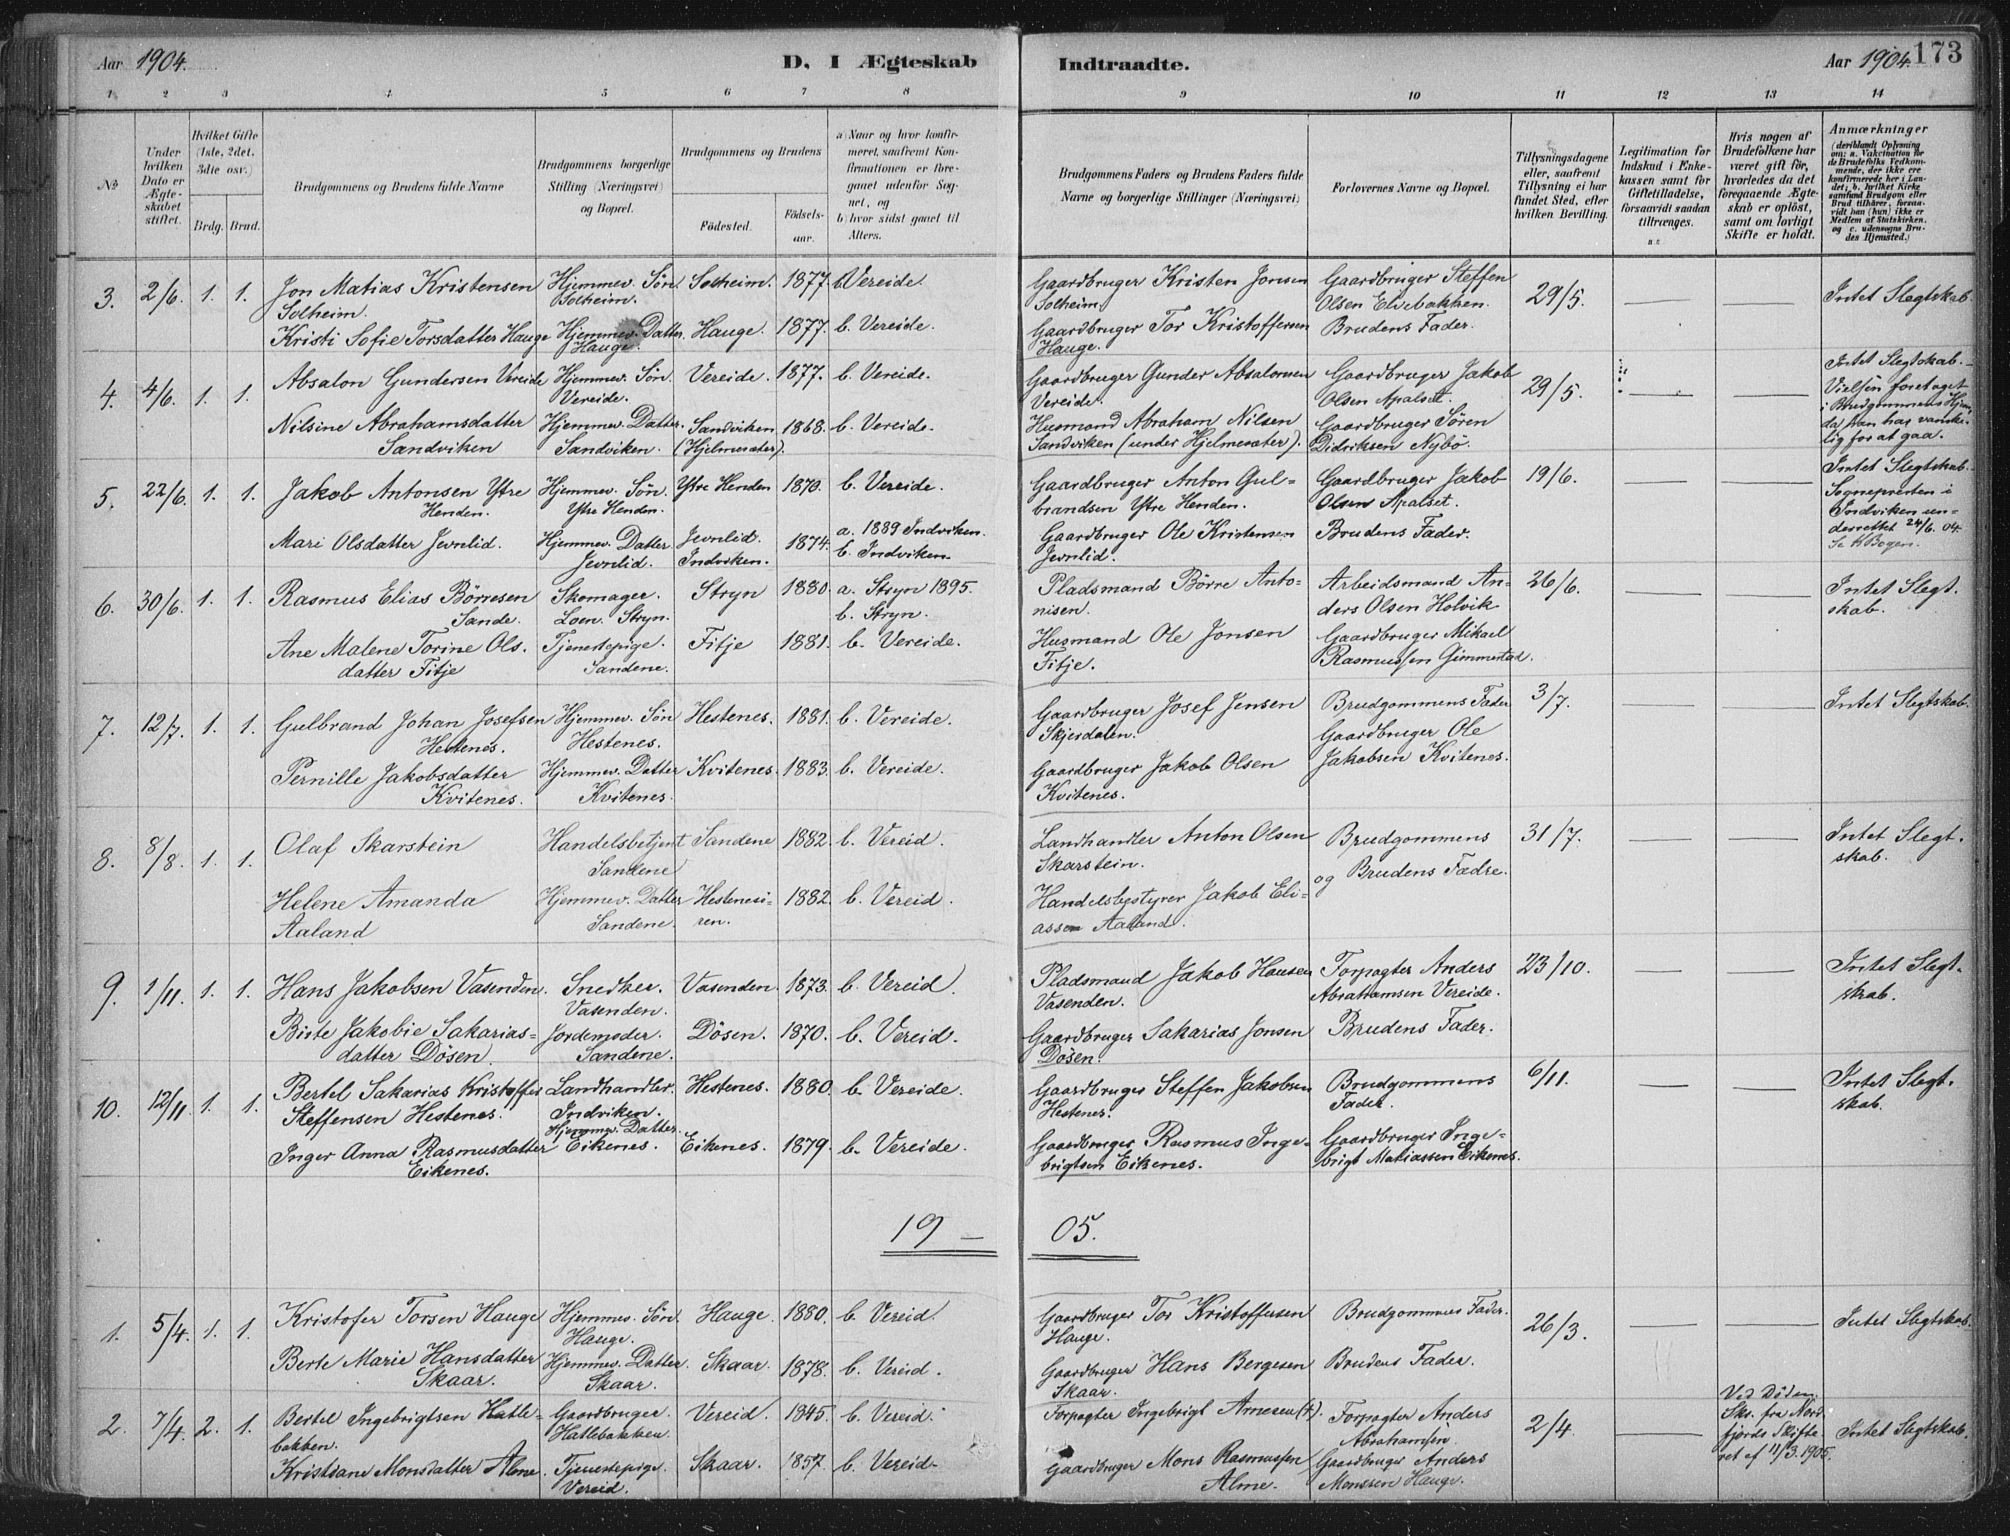 Aar 1904. D. I Ægteskab Indtraadte. Aar 1904. 173
1 2 3 4 5 6 7 8 9 10 11 12 13 14
No
Under hvilken Dato er Ægteskabet stiftet.
Hvilket Gifte (1ste, 2det, 3die osv.)
Brdg. Brud.
Brudgommens og Brudens fulde Navne
Brudgommens borgerlige Stilling (Næringsvei) og Bopæl.
Brudgommens og Brudens
Fødested. Fødselsaar.
a) Naar og hvor konfirmeret, saafremt Konfirmationen er foregaaet udenfor Sognet, og
b) hvor sidst gaaet til Alters.
Brudgommens Faders og Brudens Faders fulde Navne og borgerlige Stillinger (Næringsvei)
Forlovernes Navne og Bopæl.
Tillysningsdagene eller, saafremt Tillysning ei har fundet Sted, efter hvilken Bevilling.
Legitimation for Indskud i Enkekassen samt for Giftetilladelse, forsaavidt saadan tiltrænges.
Hvis nogen af Brudefolkene har været gift før, hvorledes da det foregaaende Ægteskab er opløst, samt om lovligt Skifte er holdt.
Anmærkninger (deriblandt Oplysning om: a. Vakcination for de Brudefolks Vedkommende, der ikke ere konfirmerede her i Landet; b. hvilket Kirkesamfund Brudgom eller Brud tilhører, forsaavidt han (hun) ikke er Medlem af Statskirken, og c. udensogns Brudes Hjemsted.)
3. 2/6. 1. 1. Jon Matias Kristensen Hjemmev. Søn Solheim. 1877. b. Vereide. Gaardbruger Kristen Jonsen Gaardbruger Steffen 29/5. Intet Slegtskab.
Solheim. Solheim. Solheim. Olsen Elvebakken.
Kristi Sofie Torsdatter Hauge Hjemmev. Datter Hauge. 1877. b. Vereide. Gaardbruger Tor Kristoffersen Brudens Fader.
Hauge. Hauge.
4. 4/6. 1. 1. Absalon Gundersen Vereide Hjemmev. Søn. Vereide. 1877. b. Vereide. Gaardbruger Gunder Absalonsen Gaardbruger Jakob 29/5. Intet Slegtskab.
Vereide. Vereide. Olsen Apalset. Vielsen foretaget
i Brudgommens Hjem,
Nilsine Abrahamsdatter Hjemmev. Datter. Sandviken 1868. b. Vereide. Husmand Abraham Nilsen Gaardbruger Søren da han har vanske-
Sandviken Sandviken. (Hjelmesæter). Sandviken (under Hjelmesæter). Didriksen Nybø. lig for at gaa.
5. 22/6. 1. 1. Jakob Antonsen Ytre Hjemmev. Søn. Ytre Henden 1870. b. Vereide. Gaardbruger Anton Gul- Gaardbruger Jakob 19/6. Intet Slegtskab.
Henden. Ytre Henden. brandsen Ytre Henden. Olsen Apalset. Sognepresten i
Mari Olsdatter Jevnlid. Hjemmev. Datter Jevnlid. 1874. a. 1889 Indviken. Gaardbruger Ole Kristensen Brudens Fader. Indviken un-
Jevnlid. Indviken. b. Indviken. Jevnlid. derrettet 24/6. 04.
6. 30/6. 1. 1. Rasmus Elias Børresen Skomager. Stryn 1880. a. Stryn 1895. Pladsmand Børre Anto- Arbeidsmand An- 26/6. Intet Slegt-
Sande. Loen. Stryn. b. Stryn. nisen. ders Olsen Holvik skab.
Ane Malene Torine Ols- Tjenestepige. Fitje 1881. b. Vereide. Husmand Ole Jonsen Gaardbruger Mikael
datter Fitje Sandene. Fitje. Rasmussen Gimmestad.
7. 12/7. 1. 1. Gulbrand Johan Josefsen Hjemmev. Søn Hestenes. 1881. b. Vereide. Gaardbruger Josef Jensen Brudgommens Fader 3/7. Intet Slegtskab.
Hestenes. Hestenes. Skjerdalen. Gaardbruger Ole
Pernille Jakobsdatter Hjemmev. Datter Kvitenes. 1883. b. Vereide. Gaardbruger Jakob Olsen Jakobsen Kvitenes.
Kvitenes. Kvitenes. Kvitenes.
8. 8/8. 1. 1. Olaf Skarstein Handelsbetjent Sandene 1882. b. Vereid. Landhandler Anton Olsen Brudgommens 31/7. Intet Slegt-
Sandene Skarstein. og Brudens Fædre. skab.
Helene Amanda Hjemmev. Datter Hestenesø- 1882. b. Vereid. Handelsbestyrer Jakob Eli-
Aaland Sandene. ren. assen Aaland.
9. 1/11. 1. 1. Hans Jakobsen Vasenden. Snedker. Vasenden. 1873. b. Vereid. Pladsmand Jakob Hansen Forpagter Anders 23/10. Intet Slegt-
Vasenden. Vasenden. Abrahamsen Vereide. skab.
Birte Jakobie Sakarias- Jordemoder. Døsen. 1870. b. Vereid. Gaardbruger Sakarias Jonsen Brudens Fader.
datter Døsen. Sandene. Døsen.
10. 12/11. 1. 1. Bertel Sakarias Kristoffer Landhandler. Hestenes. 1880. b. Vereide. Gaardbruger Steffen Jakobsen Brudgommens 6/11. Intet Slegt-
Steffensen Hestenes. Indviken. Hestenes. Fader. skab.
Inger Anna Rasmusdatter Hjemmev. Datter. Eikenes. 1879. b. Vereide. Gaardbruger Rasmus Inge- Gaardbruger Inge-
Eikenes. Eikenes. brigtsen Eikenes. brigt Matiassen Eikenes.
19 — 05.
1. 5/4. 1. 1. Kristofer Torsen Hauge Hjemmev. Søn. Hauge. 1880. b. Vereid. Gaardbruger Tor Kristoffersen Brudgommens Fader. 26/3. Intet Slegtskab.
Hauge. Hauge.
Berte Marie Hansdatter Hjemmev. Datter. Skaar. 1878. b. Vereid. Gaardbruger Hans Bergesen Brudens Fader.
Skaar. Skaar. Skaar.
2. 7/4. 2. 1. Bertel Ingebrigtsen Hatle- Gaardbruger. Vereid. 1845. b. Vereid. Forpagter Ingebrigt Arnesen (†). Forpagter Anders 2/4. Ved Døden. Intet Slegtskab.
bakken. Hatlebakken. Abrahamsen Sks. fra Nord-
Kristiane Monsdatter Alme. Tjenestepige. Skaar. 1857. b. Vereid. Gaardbruger Mons Rasmussen Gaardbruger Anders fjords Skifte-
Vereid. Alme. Monssen Hauge. ret af 11/3. 1905.